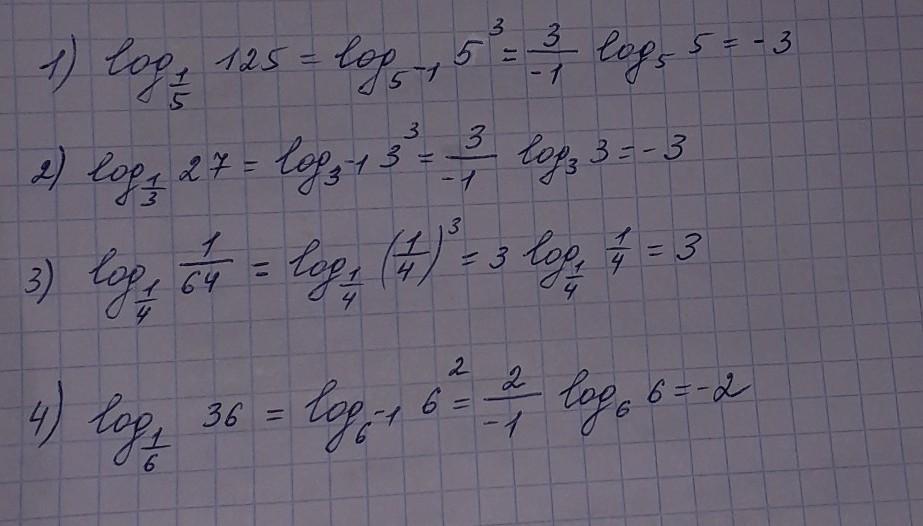 1) log_{1/5} 125 = log_{5^{-1}} 5^3 = 3/-1 log_5 5 = -3
2) log_{1/3} 27 = log_{3^{-1}} 3^3 = 3/-1 log_3 3 = -3
3) log_{1/4} 1/64 = log_{1/4} (1/4)^3 = 3 log_{1/4} 1/4 = 3
4) log_{1/6} 36 = log_{6^{-1}} 6^2 = 2/-1 log_6 6 = -2